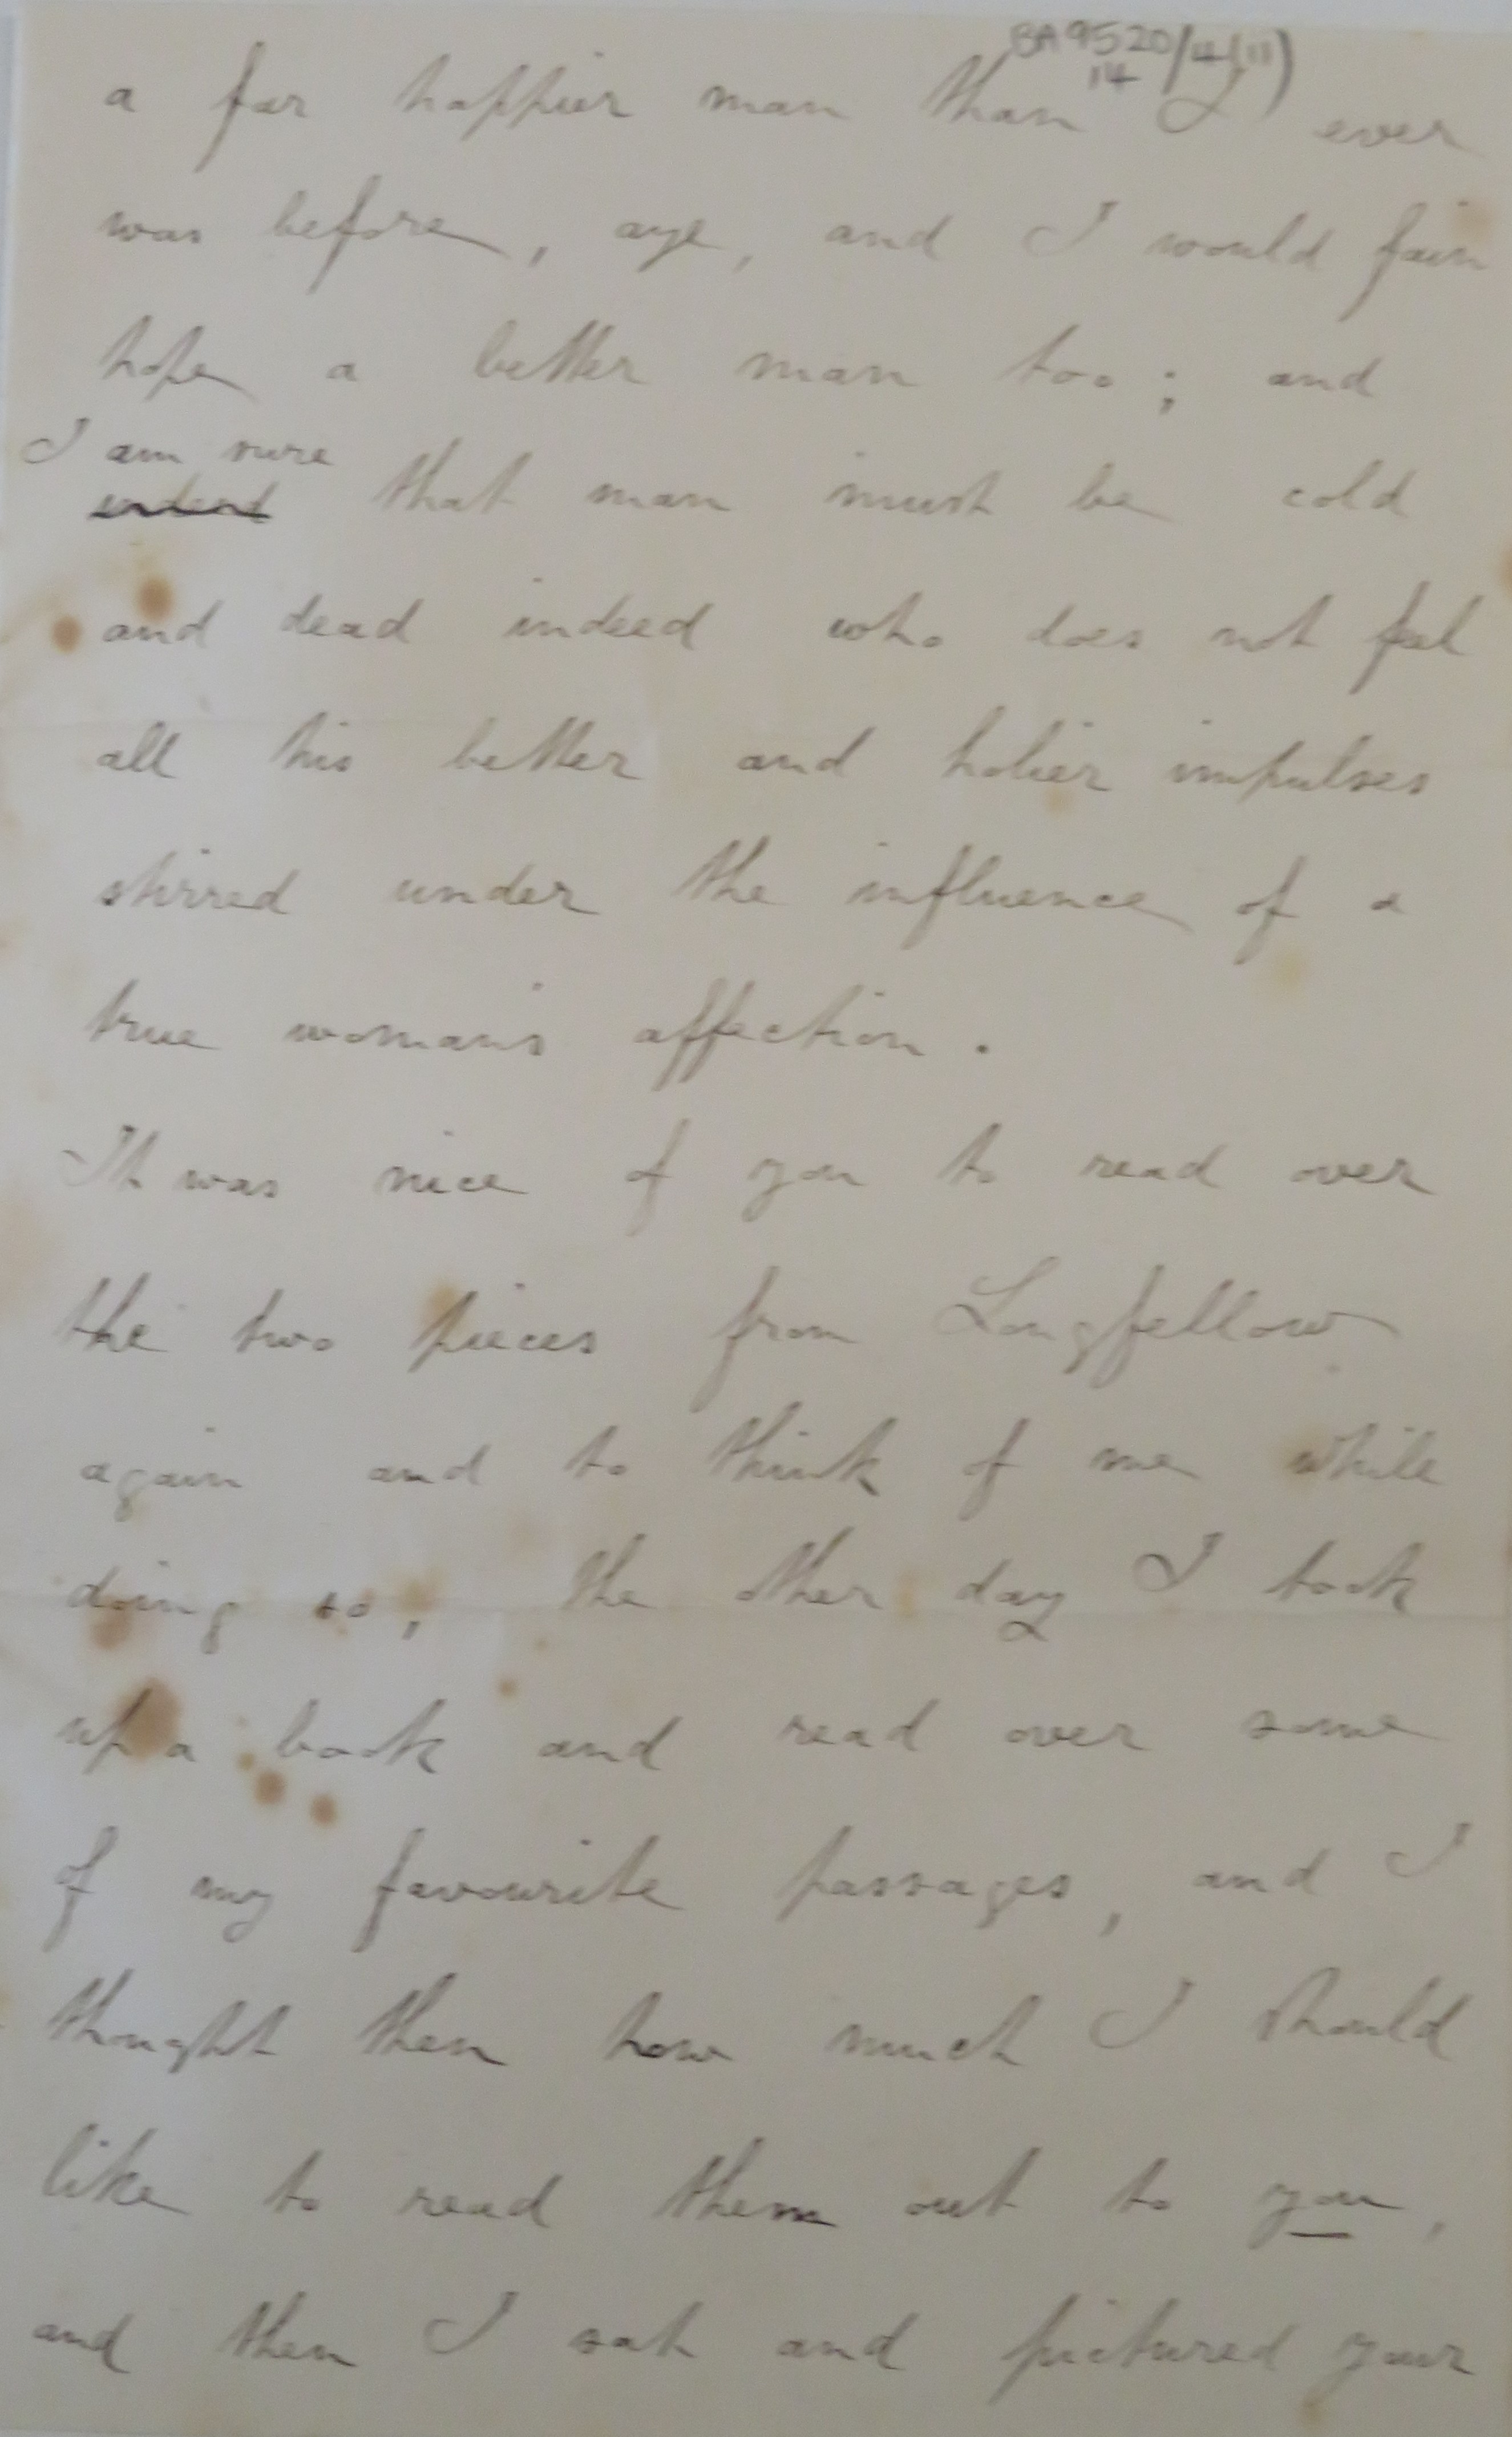 BA9520/14(11)
14
a far happier man than I ever
was before, aye, and I would fain
hope a better man too; and
I am sure
that man must be cold
and dead indeed who does not feel
all his better and holier impulses
stirred under the influence of a
true woman's affection.
It was nice of you to read over
the two pieces from Longfellow
again and to think of me while
doing so, the other day I took
up a book and read over some
of my favourite passages, and I
thought then how much I should
like to read them out to you,
and then I sat and pictured your